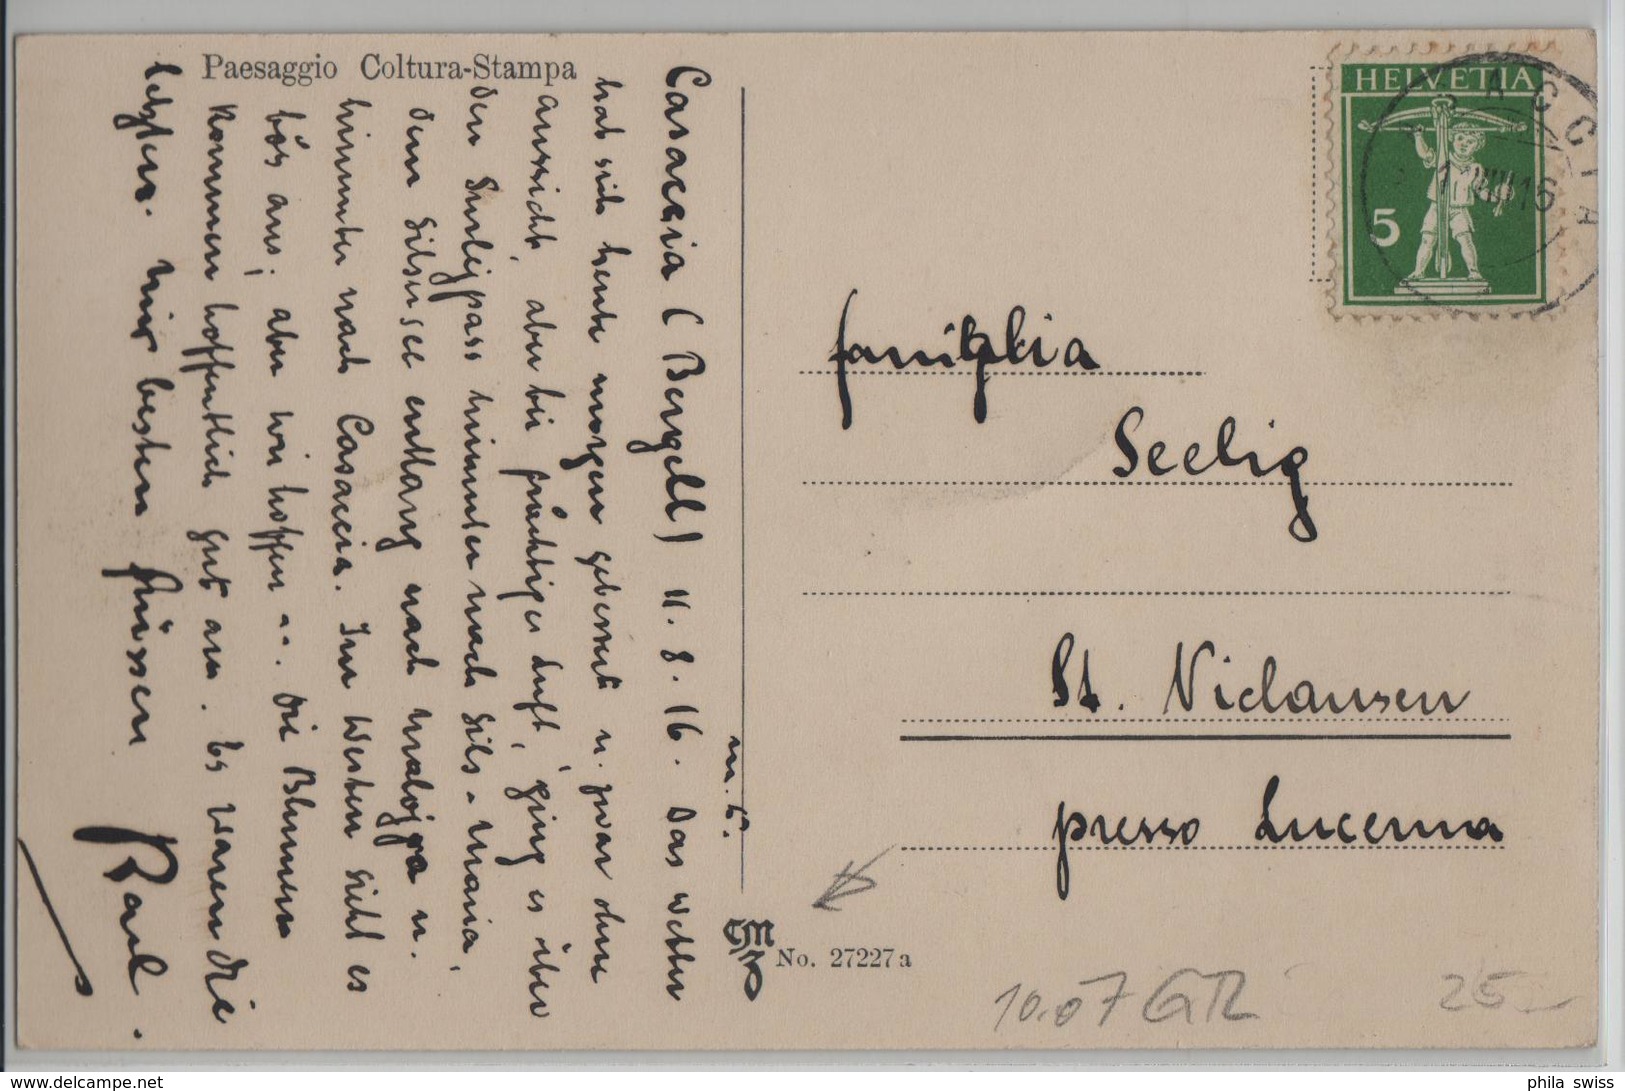 Paesaggio Coltura-Stampa
Casaccia (Bergell) 11. 8. 16. Das Wetter
hat sich heute morgen gebessert u. zwar ohne
aussicht, aber bei prächtiger Luft, ging es über
den Surlejpass hinunter nach Sils-Maria,
dem Silsersee entlang nach Maloja u.
hinunter nach Casaccia. Im Westen sieht es
bös aus; aber wir hoffen... Die Blumen
kommen hoffentlich gut an. Es waren die
letzten. Mit besten Grüssen
Karl.
HELVETIA
5
CASACCIA
VIII 16
famiglia
Seelig
St. Niclausen
presso Lucerna
No. 27227a
10.07 GR
25
delcampe.net
phila swiss